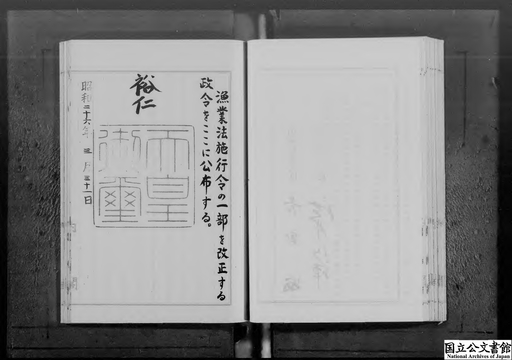 漁業法施行令の一部を改正する
政令をここに公布する。
裕仁
天皇
御璽
昭和二十六年三月三十一日
国立公文書館
National Archives of Japan